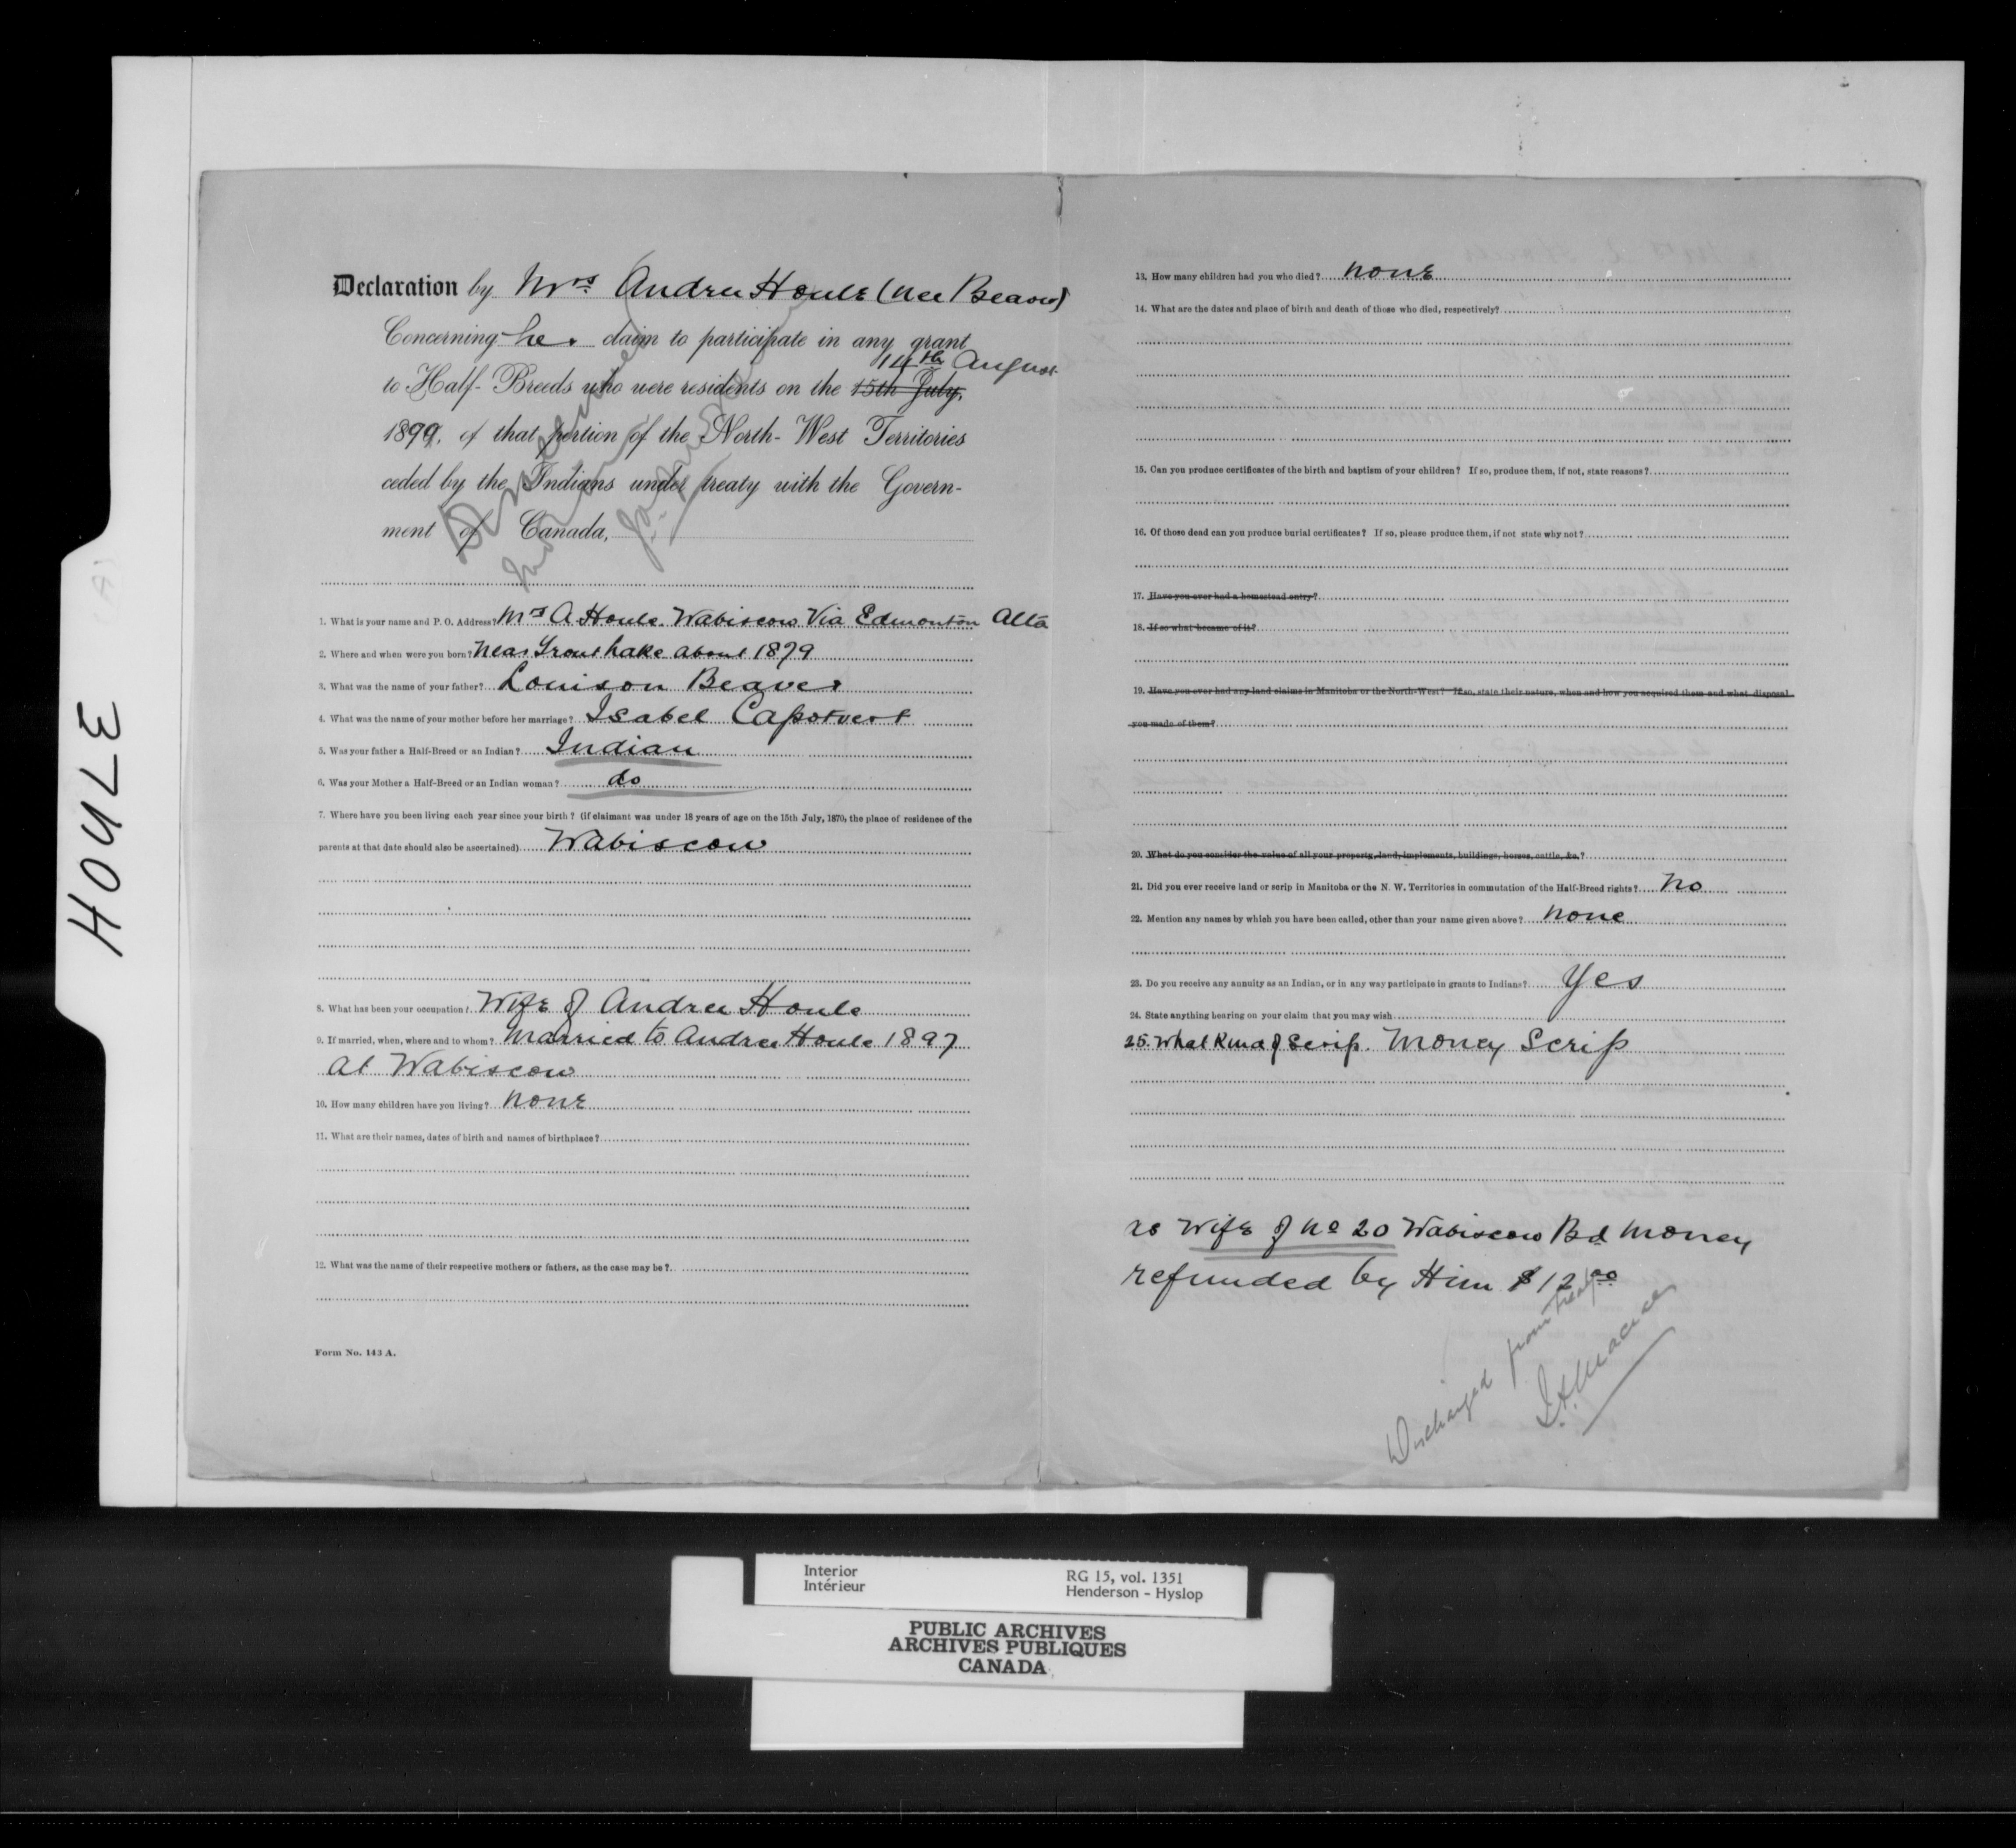 HOULE
Declaration by Mrs Andrew Houle (nee Beaver)
Concerning her claim to participate in any grant
14th August
to Half-Breeds who were residents on the 15th July,
1899, of that portion of the North-West Territories
ceded by the Indians under treaty with the Govern-
ment of Canada,
1. What is your name and P. O. Address? Mrs A. Houle. Wabiscow Via Edmonton Alta
2. Where and when were you born? Near Trout Lake about 1879
3. What was the name of your father? Louison Beaver
4. What was the name of your mother before her marriage? Isabel Capotvert
5. Was your father a Half-Breed or an Indian? Indian
6. Was your Mother a Half-Breed or an Indian woman? do
7. Where have you been living each year since your birth? (if claimant was under 18 years of age on the 15th July, 1870, the place of residence of the
parents at that date should also be ascertained) Wabiscow
8. What has been your occupation? Wife of Andrew Houle
9. If married, when, where and to whom? Married to Andrew Houle 1897
at Wabiscow
10. How many children have you living? None
11. What are their names, dates of birth and names of birthplace?
12. What was the name of their respective mothers or fathers, as the case may be?
Form No. 143 A.
13. How many children had you who died? None
14. What are the dates and place of birth and death of those who died, respectively?
15. Can you produce certificates of the birth and baptism of your children? If so, produce them, if not, state reasons?
16. Of those dead can you produce burial certificates? If so, please produce them, if not state why not?
17. Have you ever had a homestead entry?
18. If so what became of it?
19. Have you ever had any land claims in Manitoba or the North-West? If so, state their nature, when and how you acquired them and what disposal
you made of them?
20. What do you consider the value of all your property, land, implements, buildings, horses, cattle, &c.?
21. Did you ever receive land or scrip in Manitoba or the N. W. Territories in commutation of the Half-Breed rights? No
22. Mention any names by which you have been called, other than your name given above? None
23. Do you receive any annuity as an Indian, or in any way participate in grants to Indians? Yes
24. State anything bearing on your claim that you may wish
25. What Kind of Scrip. Money Scrip
as Wife of No 20 Wabiscow Bd Money
refunded by Him $12.00
Discharged from treaty
Interior
Intérieur
RG 15, vol. 1351
Henderson - Hyslop
PUBLIC ARCHIVES
ARCHIVES PUBLIQUES
CANADA